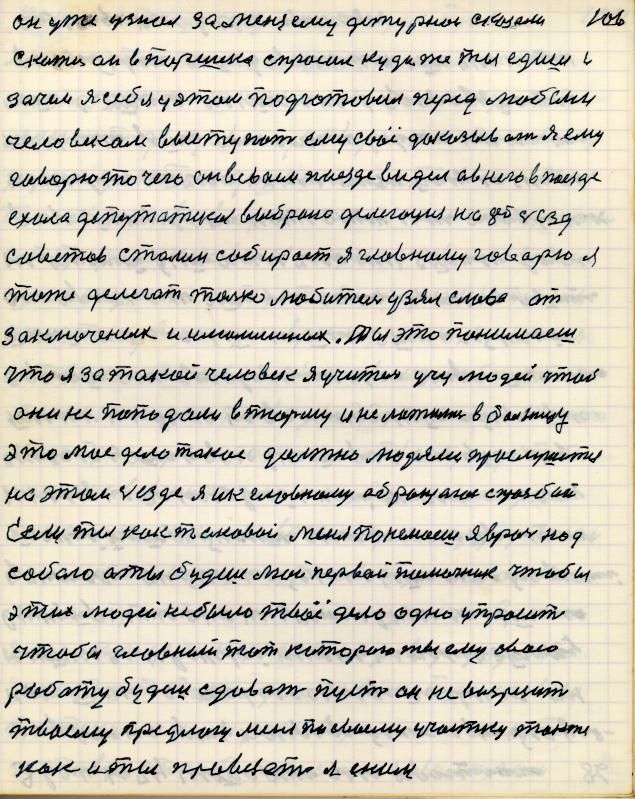 он уже узнал за меня ему детурной сказали 106
скоти он втаришка спросил куда же ты едиш и
зачем я себя у этом подготовил перед любями
человеком выступат ему своё доказыват я ему
говорю то чего он всвоем поезде видел об него в поезде
ехола депутатика выброно делегоция на усезд
советов сталин собирает я гловному говарю я
тоже делегат толко любител узял слова от
заключеных и . Ты это понимаеш
что я за такой человек я учител учу людей чтоб
они не поподали в тюрму и не ложили в болницу
это мое дело такое должно людями прослушится
на этом усезде я и к гловному оброщаюс с прозбай
Если ты как токовой меня понемаеш я врач над
собаю а ты будиш мой первой помочник чтобы
этих людей небыло твоё дело одно упросит
чтобы гловный тот которою ты ему свою
роботу будиш сдоват пуст он не возрозит
твоему предлогу меня по своему участку також
как и ты провезти я сним